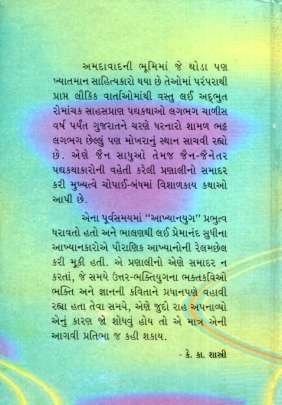 અમદાવાદની ભૂમિમાં જે થોડા પણ
ખ્યાતમાન સાહિત્યકારો થયા છે તેઓમાં પરંપરાથી
પ્રાપ્ત લૌકિક વાર્તાઓમાંથી વસ્તુ લઈ અદ્ભુત
રોમાંચક સાહસપ્રાણ પદ્યકથાઓ લગભગ ચાળીસ
વર્ષ પર્યંત ગુજરાતને ચરણે ધરનારો શામળ ભટ્ટ
લગભગ છેલ્લું પણ મોખરાનું સ્થાન સાચવી રહ્યો
છે. એણે જૈન સાધુઓ તેમજ જૈન-જૈનેતર
પદ્યકથાકારોની વહેતી કરેલી પ્રણાલીનો સમાદર
કરી મુખ્યત્વે ચોપાઈ-બંધમાં વિશાળકાય કથાઓ
આપી છે.
એના પૂર્વસમયમાં “આખ્યાનયુગ” પ્રભુત્વ
ધરાવતો હતો અને ભાલણથી લઈ પ્રેમાનંદ સુધીના
આખ્યાનકારોએ પૌરાણિક આખ્યાનોની રેલમછેલ
કરી મૂકી હતી. એ પ્રણાલીનો એણે સમાદર ન
કરતાં, જે સમયે ઉત્તર-ભક્તિયુગના ભક્તકવિઓ
ભક્તિ અને જ્ઞાનની કવિતાને પ્રધાનપણે વહાવી
રહ્યા હતા તેવા સમયે, એણે જુદો રાહ અપનાવ્યો
એનું કારણ જો શોધવું હોય તો એ માત્ર એની
આગવી પ્રતિભા જ કહી શકાય.
- કે. કા. શાસ્ત્રી